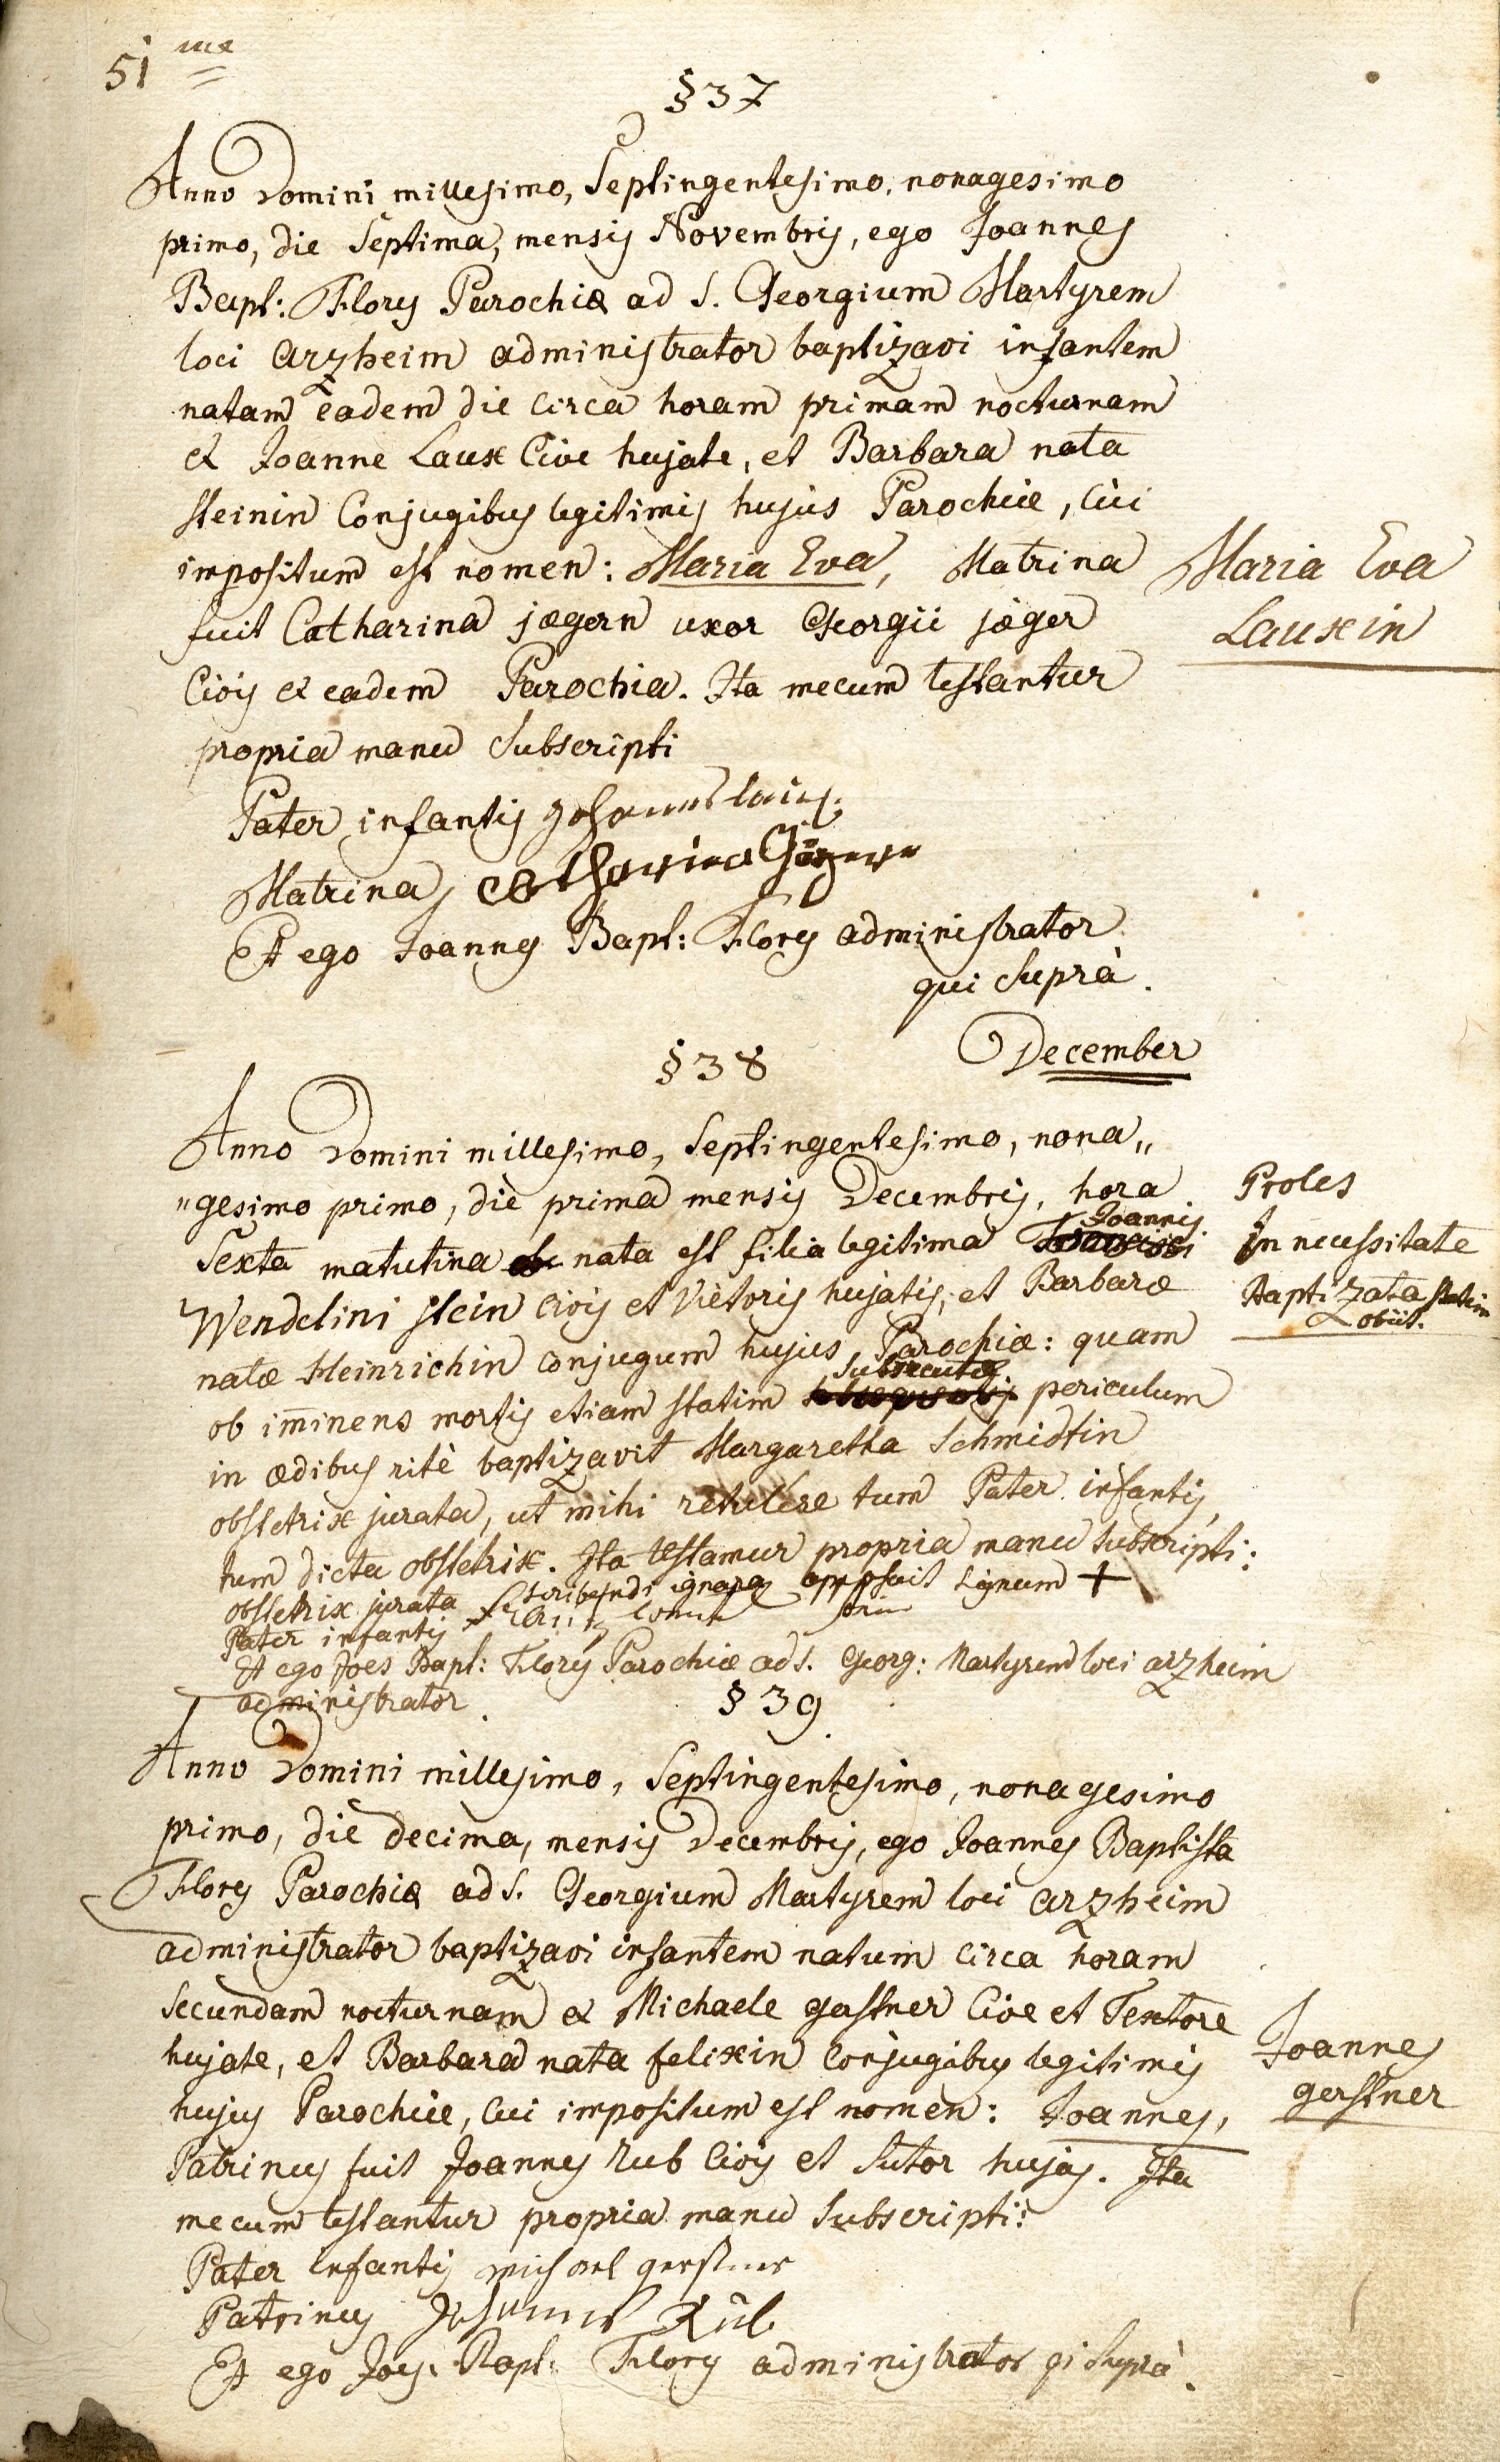 51 me
§ 37
Anno Domini millesimo, Septingentesimo, nonagesimo
primo, die Septima, mensis Novembris, ego Joannes
Bapt: Flory Parochiæ ad S. Georgium Martyrem
loci arzheim administrator baptizavi infantem
natam eadem die circa horam primam nocturnam
ex Joanne Laux Cive hujate, et Barbara nata
Steinin Conjugibus legitimis hujus Parochiæ, cui
impositum est nomen: Maria Eva, Matrina
Maria Eva
Lauxin
fuit Catharina jægern uxor Georgii jæger
Civis ex eadem Parochia. Ita mecum testantur
propria manu Subscripti
Pater infantis Johannes
Matrina, Catharina
Et ego Joannes Bapt: Flory administrator
qui Suprà.
December
§ 38
Anno Domini millesimo, Septingentesimo, nona„
„gesimo primo, die prima mensis Decembris, hora
Sexta matutina nata est filia legitima Joannis
Wendelini Stein Civis et Viètoris hujatis, et Barbaræ
natæ Heinrichin conjugum hujus Parochiæ: quam
ob im̅inens mortis etiam statim Subsecutæ periculum
in ædibus ritè baptizavit Margaretha Schmidtin
obstetrix jurata, ut mihi retulêre tum Pater infantis,
tum dicta obstetrix. Ita testamur propria manu subscripti:
obstetrix jurata scribendi ignara apposuit Signum +
Pater infantis
Et ego Joes Bapt: Flory Parochiæ ad S. Georg: Martyrem loci arzheim
administrator.
Proles
In necessitate
Baptizata statim
obiit.
§ 39
Anno Domini millesimo, Septingentesimo, nonagesimo
primo, die decima, mensis Decembris, ego Joannes Baptista
Flory Parochiæ ad S. Georgium Martyrem loci arzheim
administrator baptizavi infantem natum circa horam
Secundam nocturnam ex Michaele gerstner Cive et Textore
hujate, et Barbara nata felixin Conjugibus legitimis
hujus Parochiæ, Cui impositum est nomen: Joannes,
Joannes
gerstner
Patrinus fuit Joannes Rub Civis et Sutor hujas. Ita
mecum testantur propria manu Subscripti:
Pater infantis Michael gerstner
Patrinus Johannes Rüb
Et ego Joes. Bapt: Flory administrator qi Suprà.